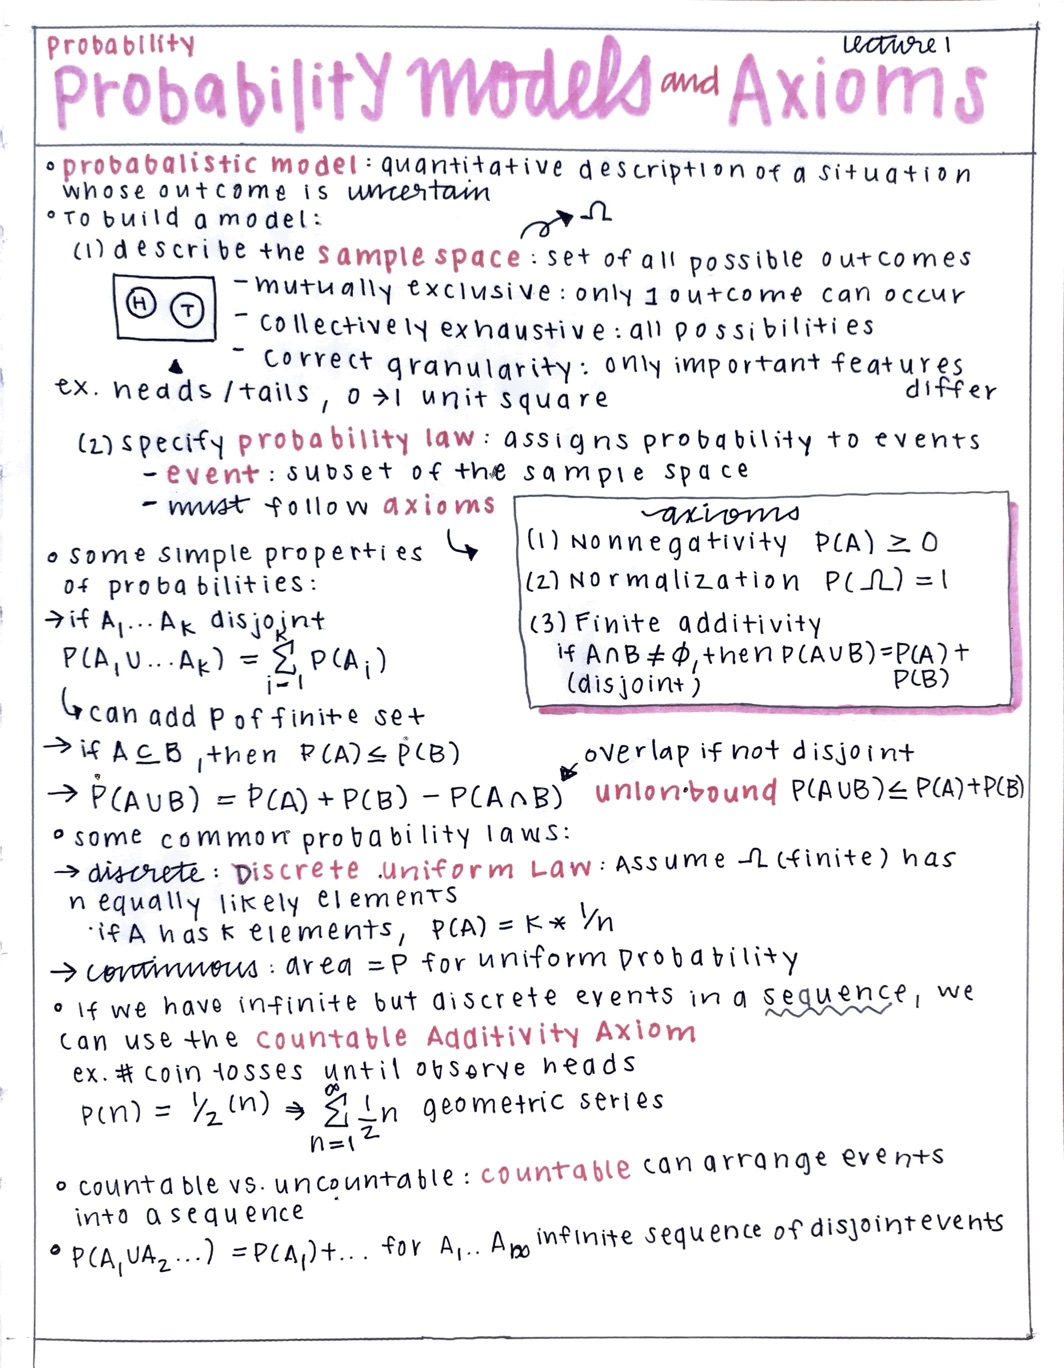 Probability
Lecture 1
Probability models and Axioms
◦ probabalistic model: quantitative description of a situation
whose outcome is uncertain
◦ To build a model:
Ω
(1) describe the sample space: set of all possible outcomes
H T
- mutually exclusive: only 1 outcome can occur
- collectively exhaustive: all possibilities
- correct granularity: only important features
differ
ex. heads/tails, 0→1 unit square
(2) specify probability law: assigns probability to events
- event: subset of the sample space
- must follow axioms
axioms
(1) Nonnegativity P(A) ≥ 0
(2) Normalization P(Ω) = 1
(3) Finite additivity
if A∩B ≠ ∅, then P(A∪B) = P(A) +
(disjoint) P(B)
◦ some simple properties
of probabilities:
→ if A₁...Aₖ disjoint
P(A₁∪...Aₖ) = Σ_{i=1}^{k} P(Aᵢ)
↳ can add P of finite set
→ if A⊆B, then P(A) ≤ P(B)
overlap if not disjoint
→ P(A∪B) = P(A) + P(B) − P(A∩B)
union bound P(A∪B) ≤ P(A)+P(B)
◦ some common probability laws:
→ discrete: Discrete uniform Law: Assume Ω (finite) has
n equally likely elements
· if A has k elements, P(A) = k * 1/n
→ continuous: area = P for uniform probability
◦ If we have infinite but discrete events in a sequence, we
can use the countable Additivity Axiom
ex. # coin tosses until observe heads
P(n) = 1/2(n) → Σ_{n=1}^{∞} 1/2 n geometric series
◦ countable vs. uncountable: countable can arrange events
into a sequence
◦ P(A₁∪A₂...) = P(A₁)+... for A₁..A∞ infinite sequence of disjoint events